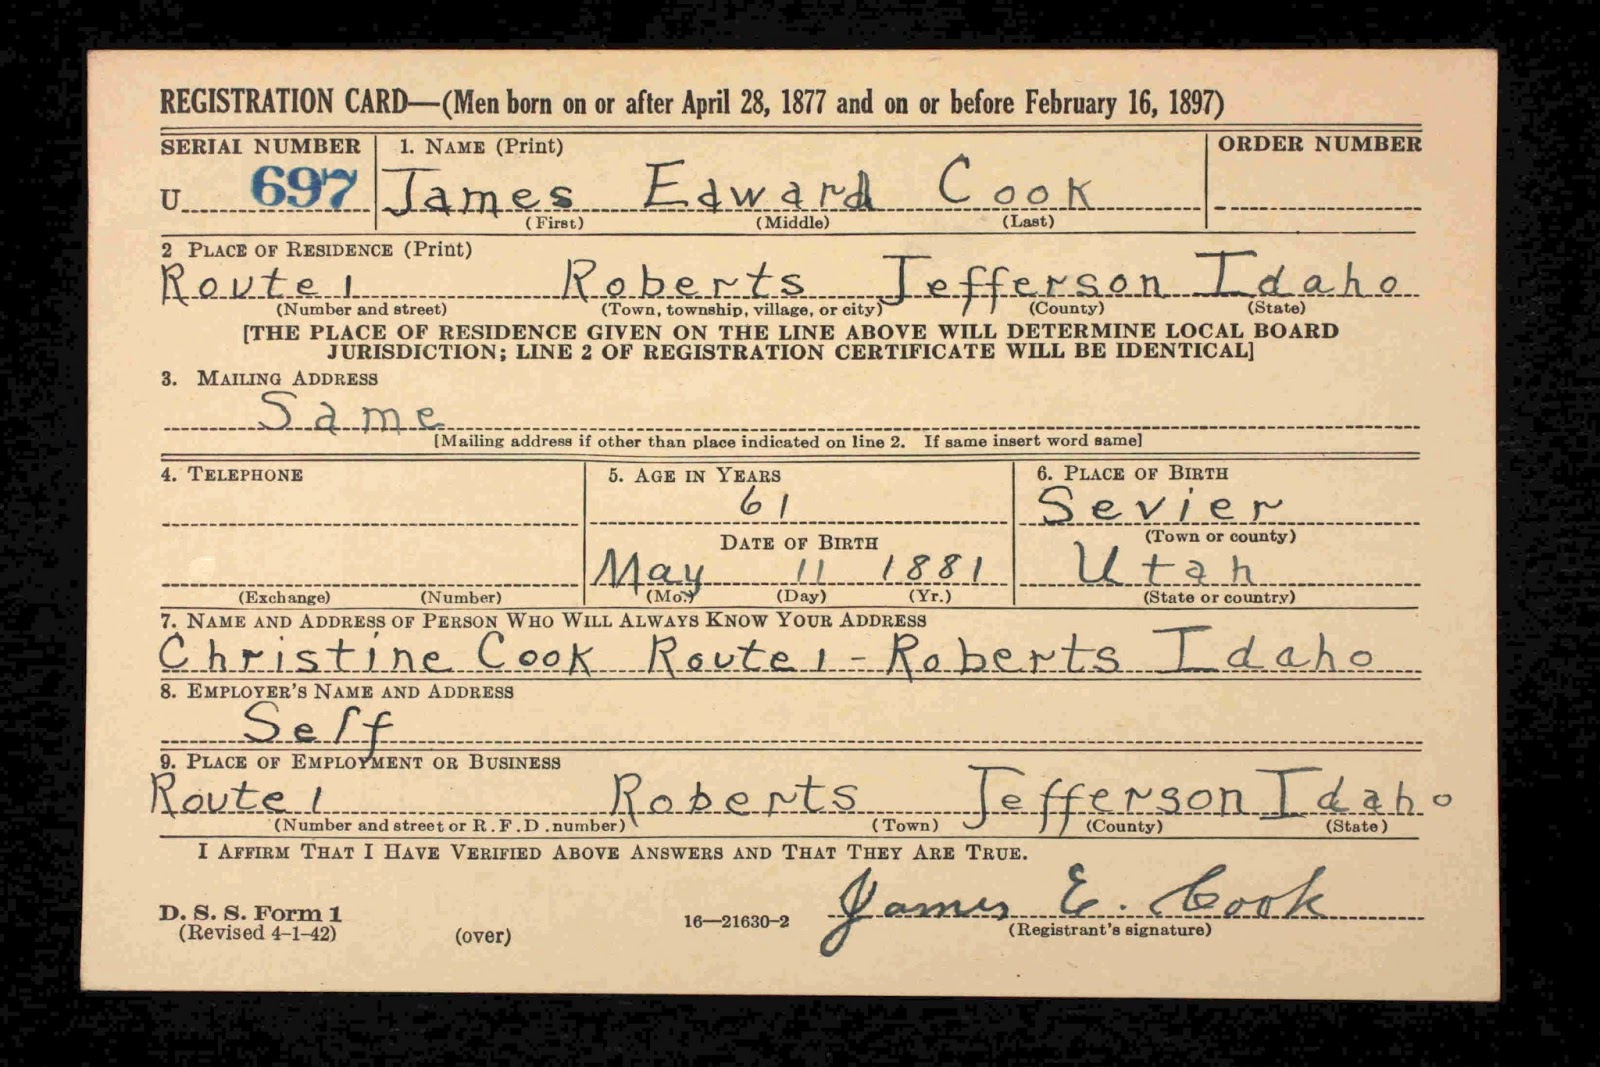 REGISTRATION CARD—(Men born on or after April 28, 1877 and on or before February 16, 1897)
SERIAL NUMBER 1. NAME (Print) ORDER NUMBER
U 697 James Edward Cook
(First) (Middle) (Last)
2 PLACE OF RESIDENCE (Print)
Route 1 Roberts Jefferson Idaho
(Number and street) (Town, township, village, or city) (County) (State)
[THE PLACE OF RESIDENCE GIVEN ON THE LINE ABOVE WILL DETERMINE LOCAL BOARD
JURISDICTION; LINE 2 OF REGISTRATION CERTIFICATE WILL BE IDENTICAL]
3. MAILING ADDRESS
Same
[Mailing address if other than place indicated on line 2. If same insert word same]
4. TELEPHONE 5. AGE IN YEARS 6. PLACE OF BIRTH
61 Sevier
DATE OF BIRTH (Town or county)
May 11 1881 Utah
(Exchange) (Number) (Mo.) (Day) (Yr.) (State or country)
7. NAME AND ADDRESS OF PERSON WHO WILL ALWAYS KNOW YOUR ADDRESS
Christine Cook Route 1 - Roberts Idaho
8. EMPLOYER'S NAME AND ADDRESS
Self
9. PLACE OF EMPLOYMENT OR BUSINESS
Route 1 Roberts Jefferson Idaho
(Number and street or R.F.D. number) (Town) (County) (State)
I AFFIRM THAT I HAVE VERIFIED ABOVE ANSWERS AND THAT THEY ARE TRUE.
James E. Cook
D. S. S. Form 1 16—21630-2 (Registrant's signature)
(Revised 4-1-42) (over)